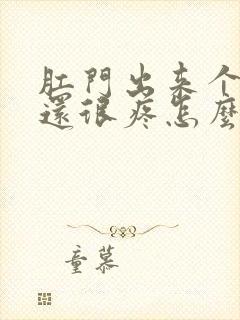 肛門出來个
還很疼怎麼
童慕